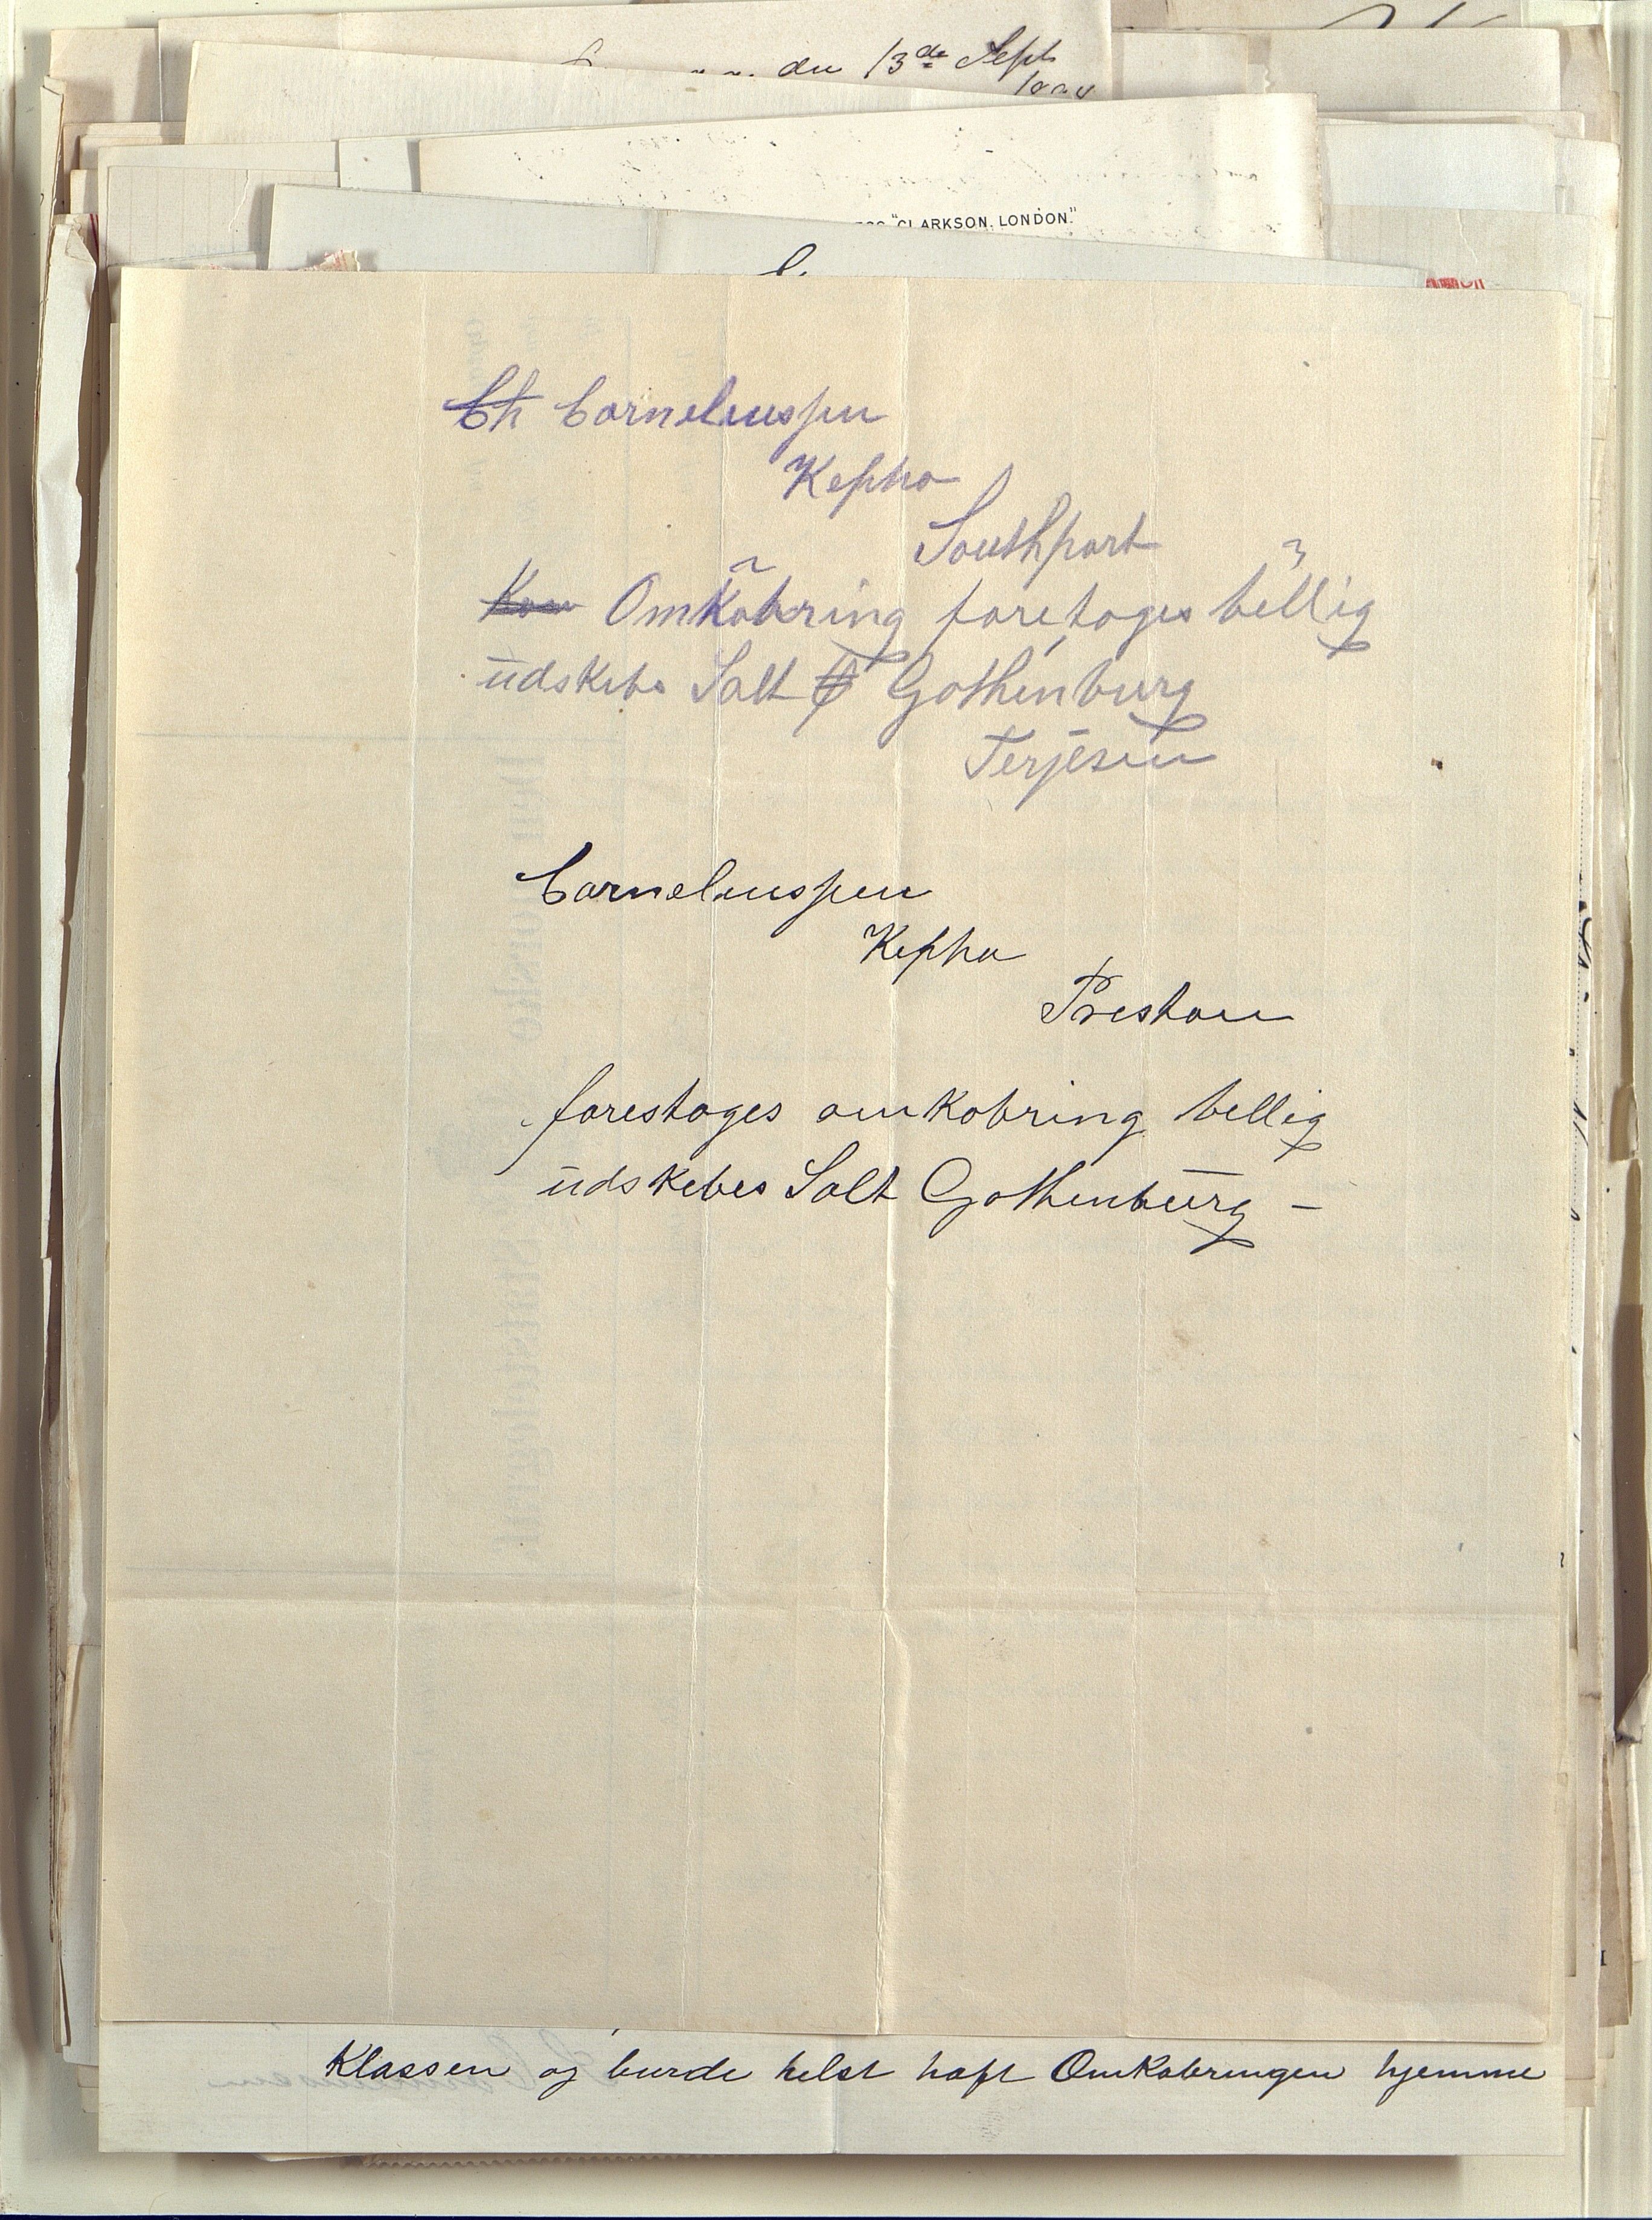 den 13de Sept
CLARKSON, LONDON."
Ch Corneliussen
Kepha
Southport
Kan Omkobring foretages billig
udskibe Salt Gothenburg
Terjesen
Corneliussen
Kepha
Preston
forestages omkobring billig
udskebes Salt Gothenburg –
Klassen og burde helst haft Omkobringen hjemme